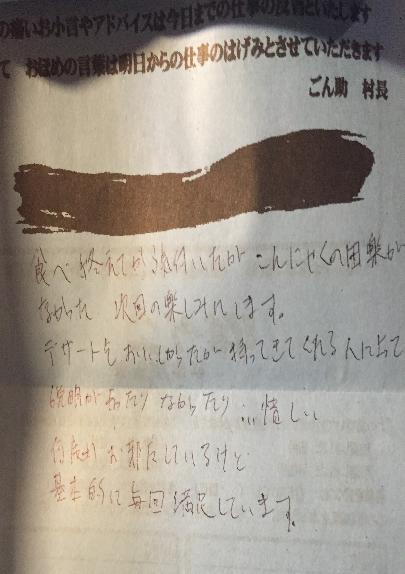 の痛いお小言やアドバイスは今日までの仕事の反省といたします
て おほめの言葉は明日からの仕事のはげみとさせていただきます
ごん助 村長
食べ終えてから気付いたが こんにゃくの田楽が
なかった 次回の楽しみにします。
デザートもおいしかったが 持ってきてくれる人によって
説明があったり なかったり … 惜しい
何度か お邪しているけど
基本的に毎回満足しています。